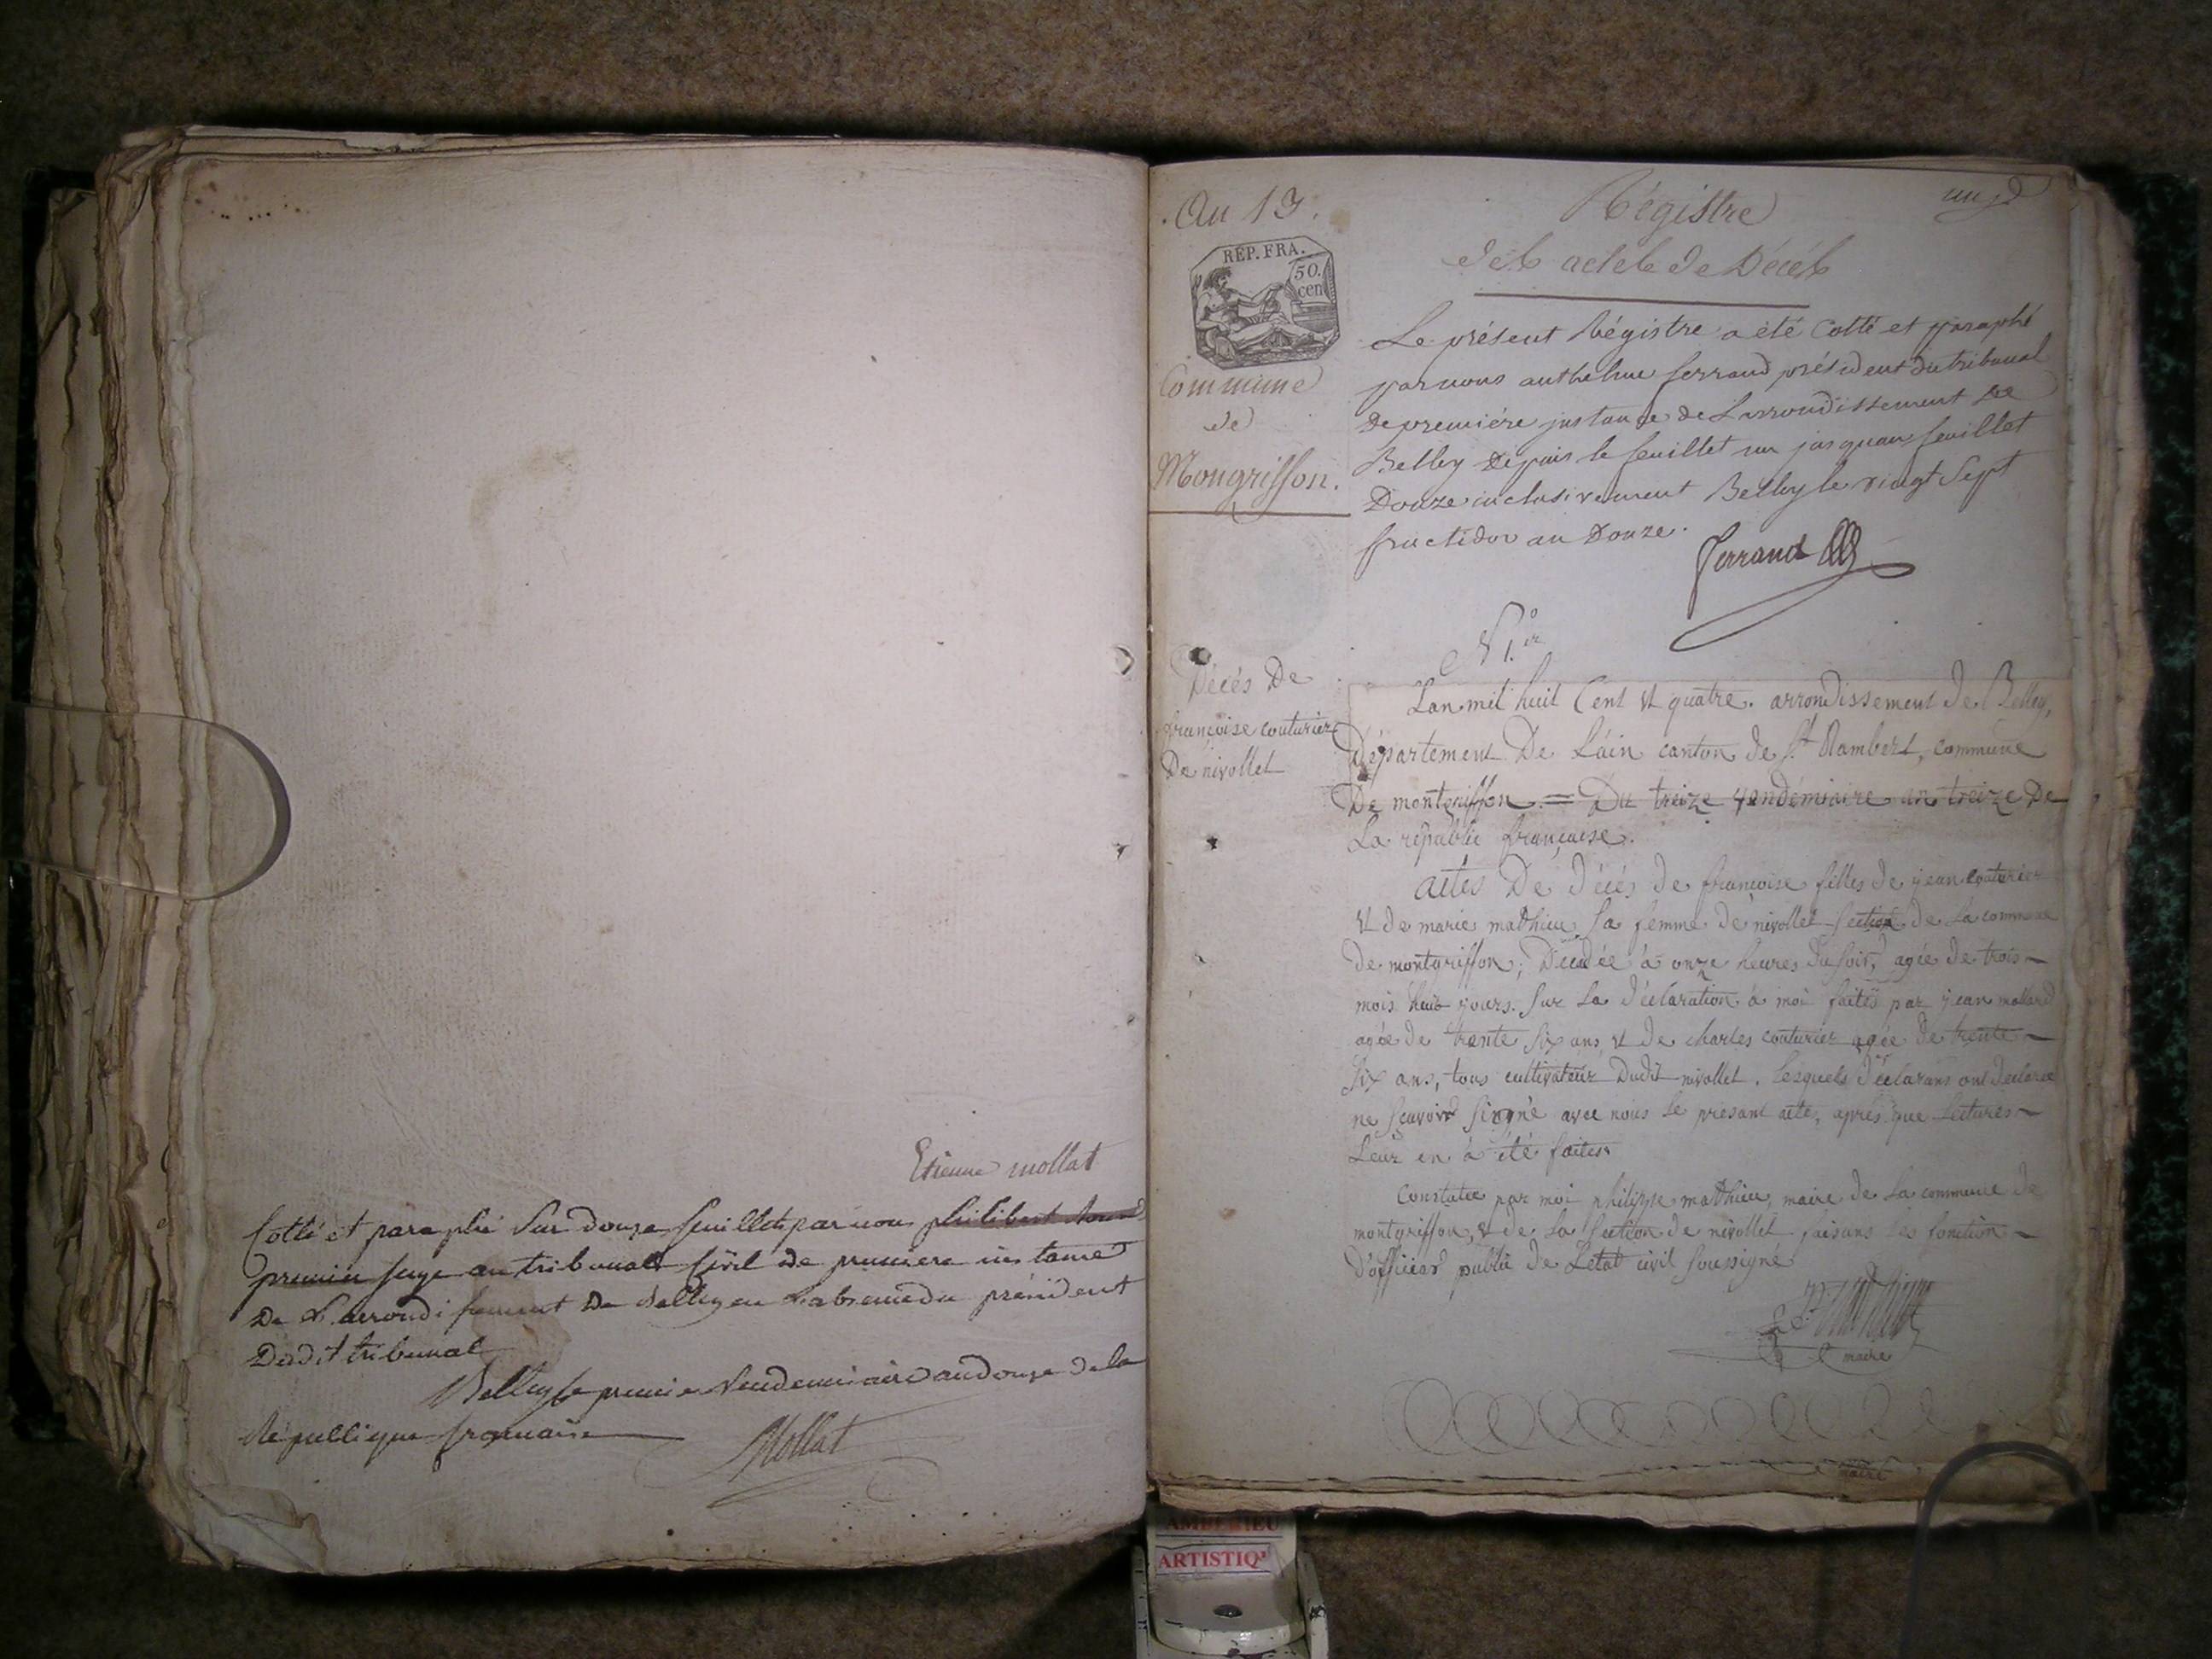 Etienne mollat
Cotté et paraphé Sur douze feuillets par nous philibert
premier juge au tribunal civil de premiere instance
De L'arrondissement De Belley en L'absence du président
Dudit tribunal
Belley le premier Vendemiaire an douze de la
Republique francaise
Mollat
An 13.
REP. FRA.
50.
cen
Commune
de
Mongriffon.
Régistre
des actes de Décès
un
Le présent Régistre a été Cotté et paraphé
par nous anthelme ferrand président du tribunal
de premiére instance de Larrondissement de
Belley Depuis le feuillet un jusquau feuillet
Douze inclusivement Belley le vingt Sept
fructidor an Douze.
Ferrand
N.º 1.er
Décés De
françoise couturier
De nivollet
Lan mil huit Cent et quatre. arrondissement de Belley,
Département De Láin canton de St Rambert, commune
De montgriffon = Du treize vendémiaire an treize De
La républic française.
actes De décés de françoise filles de jean couturier
et de marie mathieu Sa femme de nivollet Section de La commune
De montgriffon; Décédée à onze heures du Soir, agée de trois
mois huit jours. Sur La déclaration à moi faites par jean mollard
agée de trente Six ans et de charles couturier agée de trente
Six ans, tous cultivateur Dudit nivollet. Lesquels déclarans ont Déclarée
ne Scavoir Singné avec nous Le présant acte, aprés que Lectures
Leur en à été faites
Constatee par moi philippe mathieu, maire de La commune de
montgriffon, et de La Section de nivollet faisans Les fonction
D'officier public de L'etat civil Soussigne
maire
maire
AMBERIEU
ARTISTIQ